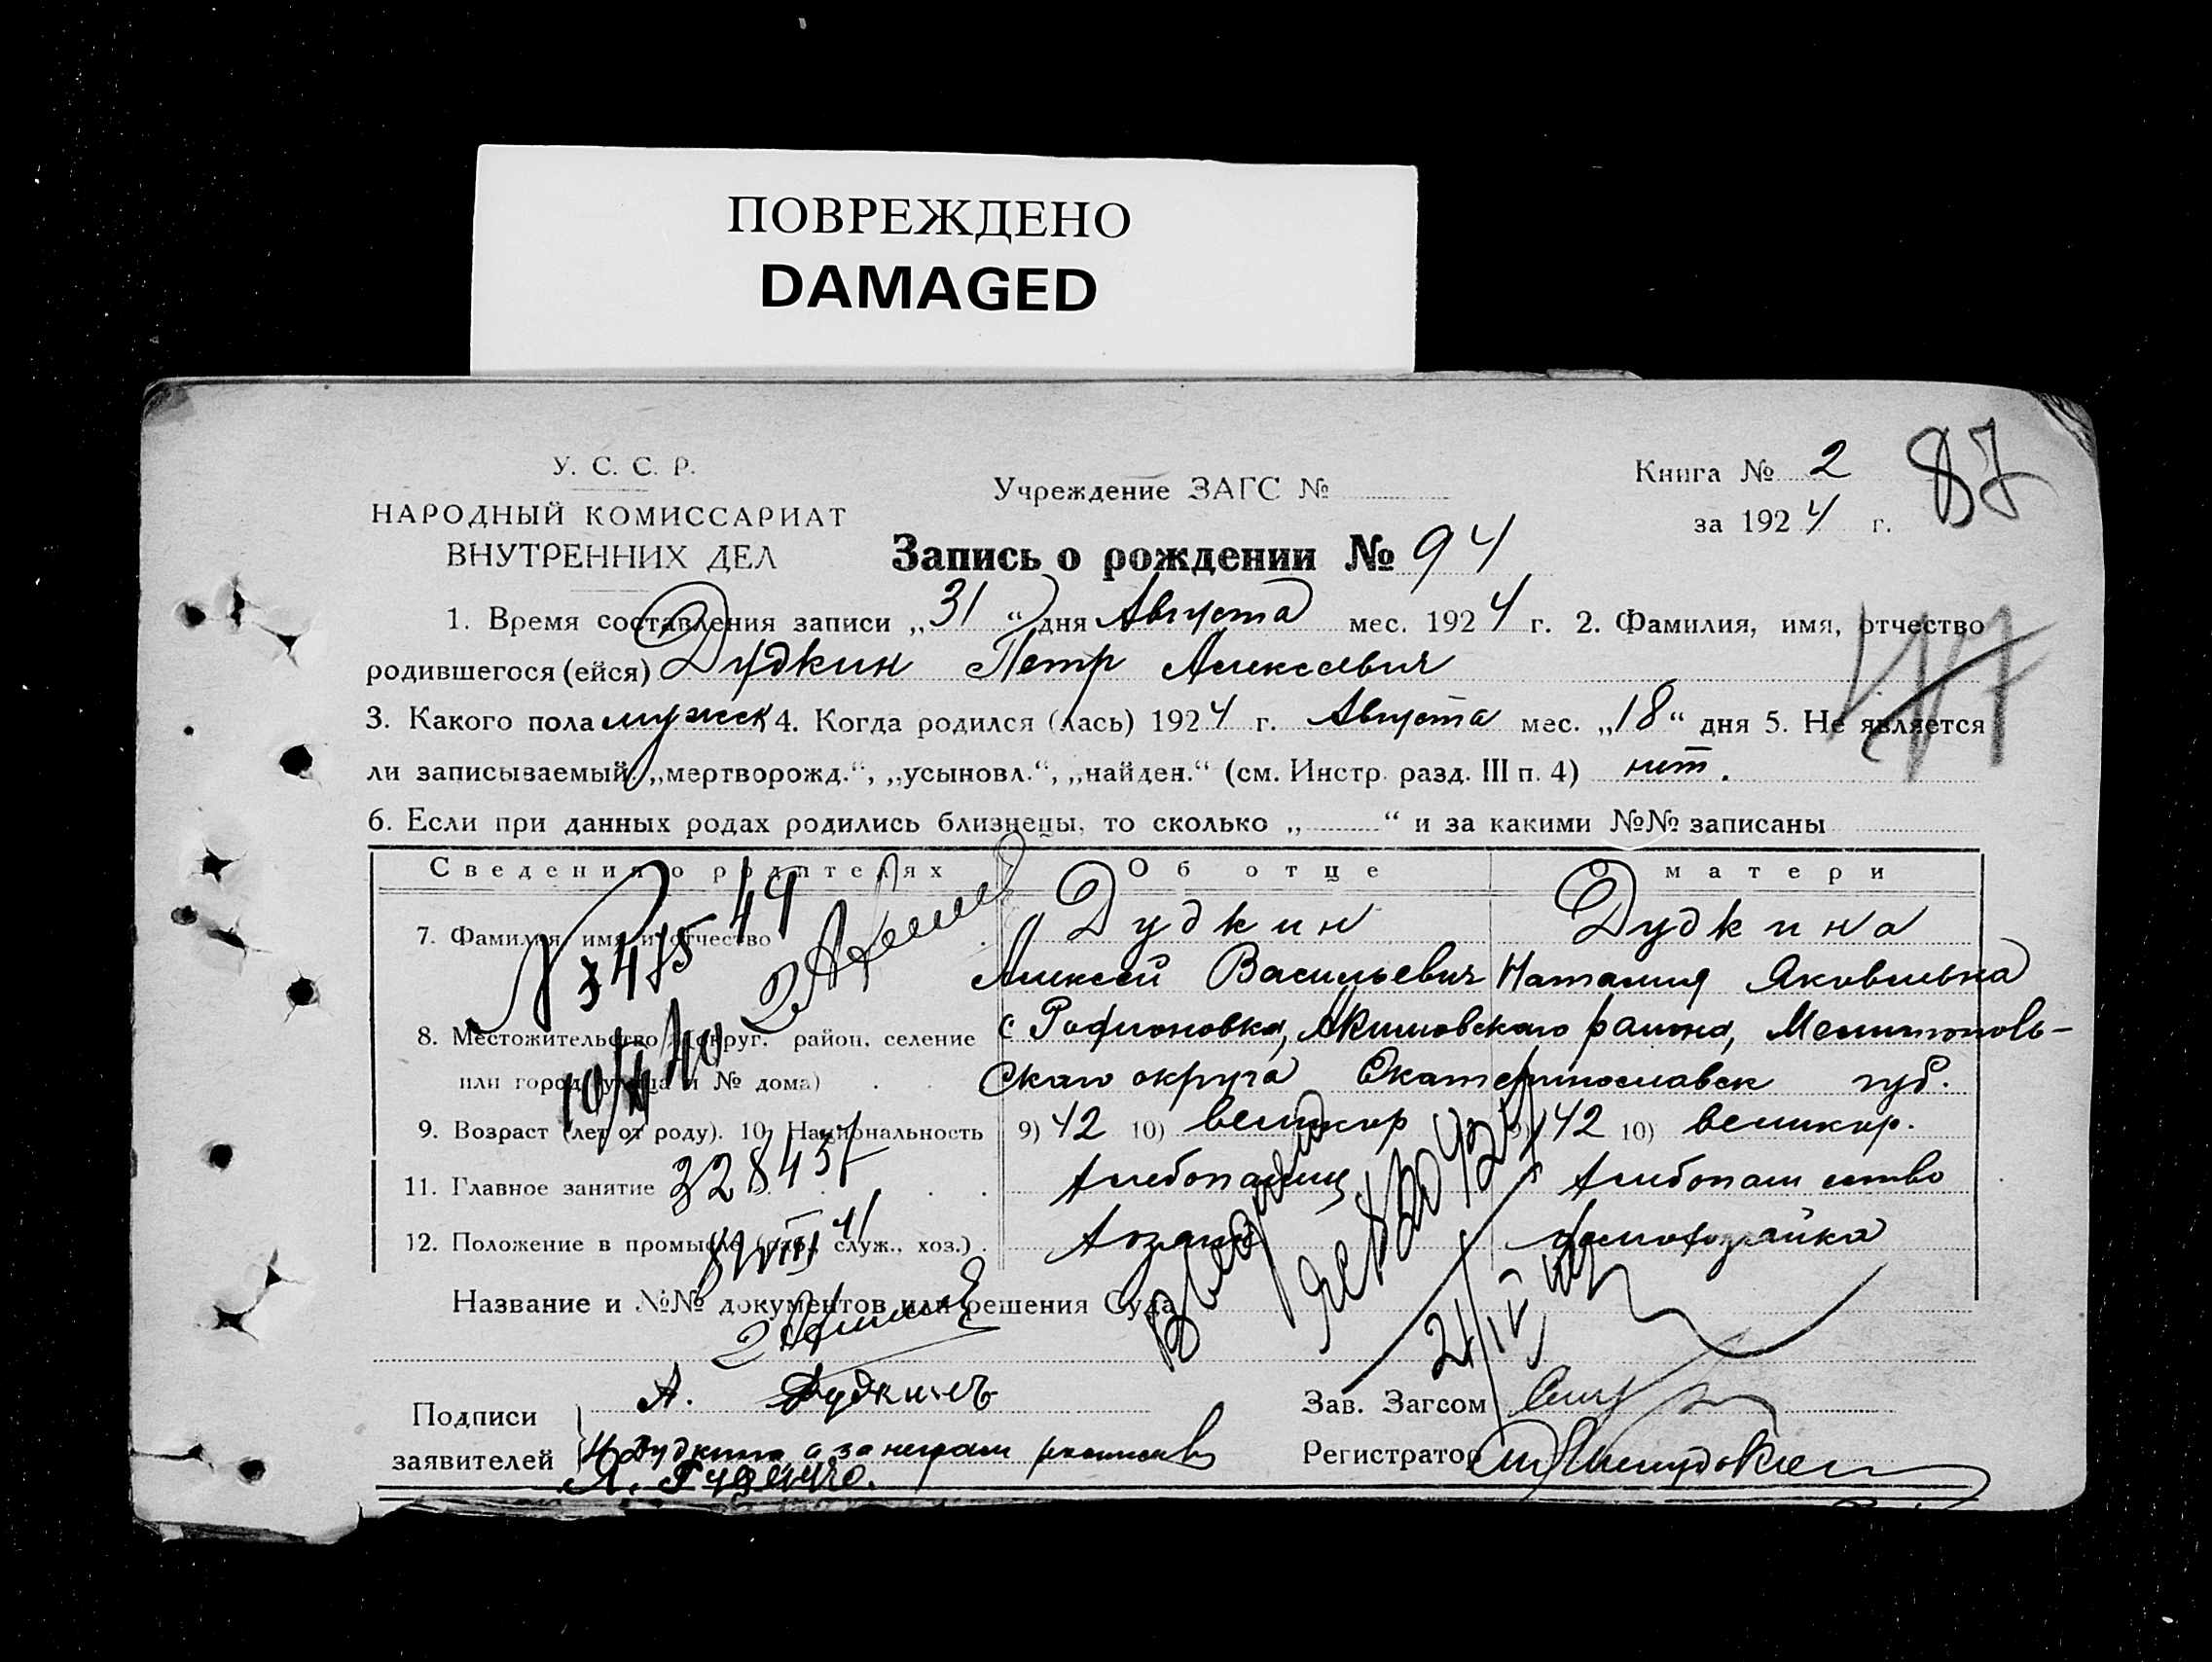 ПОВРЕЖДЕНО
DAMAGED
У. С. С. Р.
НАРОДНЫЙ КОМИССАРИАТ
ВНУТРЕННИХ ДЕЛ
Учреждение ЗАГС №
Книга № 2
за 1924 г.
87
Запись о рождении № 94
1. Время составления записи „31“ дня Августа мес. 1924 г. 2. Фамилия, имя, отчество
родившегося (ейся) Дудкин Петр Алексеевич
3. Какого пола мужск 4. Когда родился (лась) 1924 г. Августа мес. „18“ дня 5. Не является
ли записываемый: „мертворожд.“, „усыновл.“, „найден.“ (см. Инстр. разд. III п. 4) нет.
6. Если при данных родах родились близнецы, то сколько „ “ и за какими №№ записаны
Сведения о родителях Об отце О матери
7. Фамилия, имя и отчество Дудкин Дудкина
Алексей Васильевич Наталия Яковлевна
8. Местожительство (округ, район, селение с Родионовка, Акимовского района, Мелитополь-
или город, улица и № дома) ского округа Екатеринославск губ.
9. Возраст (лет от роду). 10. Национальность 9) 42 10) великор 9) 42 10) великор.
11. Главное занятие Хлебопашец Хлебопашество
328437
12. Положение в промысле (раб., служ., хоз.) Хозяин домохозяйка
Название и №№ документов или решения Суда
Подписи
заявителей
А. Дудкинъ
Н Дудкина, а за неграм
Зав. Загсом
Регистратор